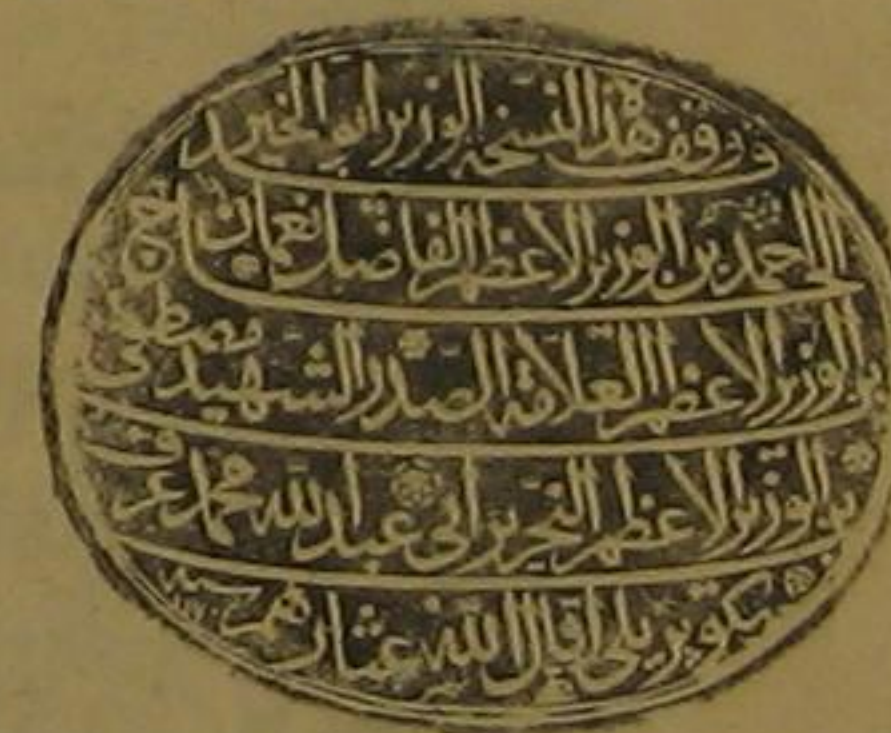 قد وقف هذا النسخة الوزير ابو الخير
الحاج احمد بن الوزير الاعظم الفاضل نعمان
بن الوزير الاعظم العلامة الصدر الشهيد مصطفى
بن الوزير الاعظم النحرير ابي عبد الله محمد عرف
بكوپريلي اقال الله عثارهم